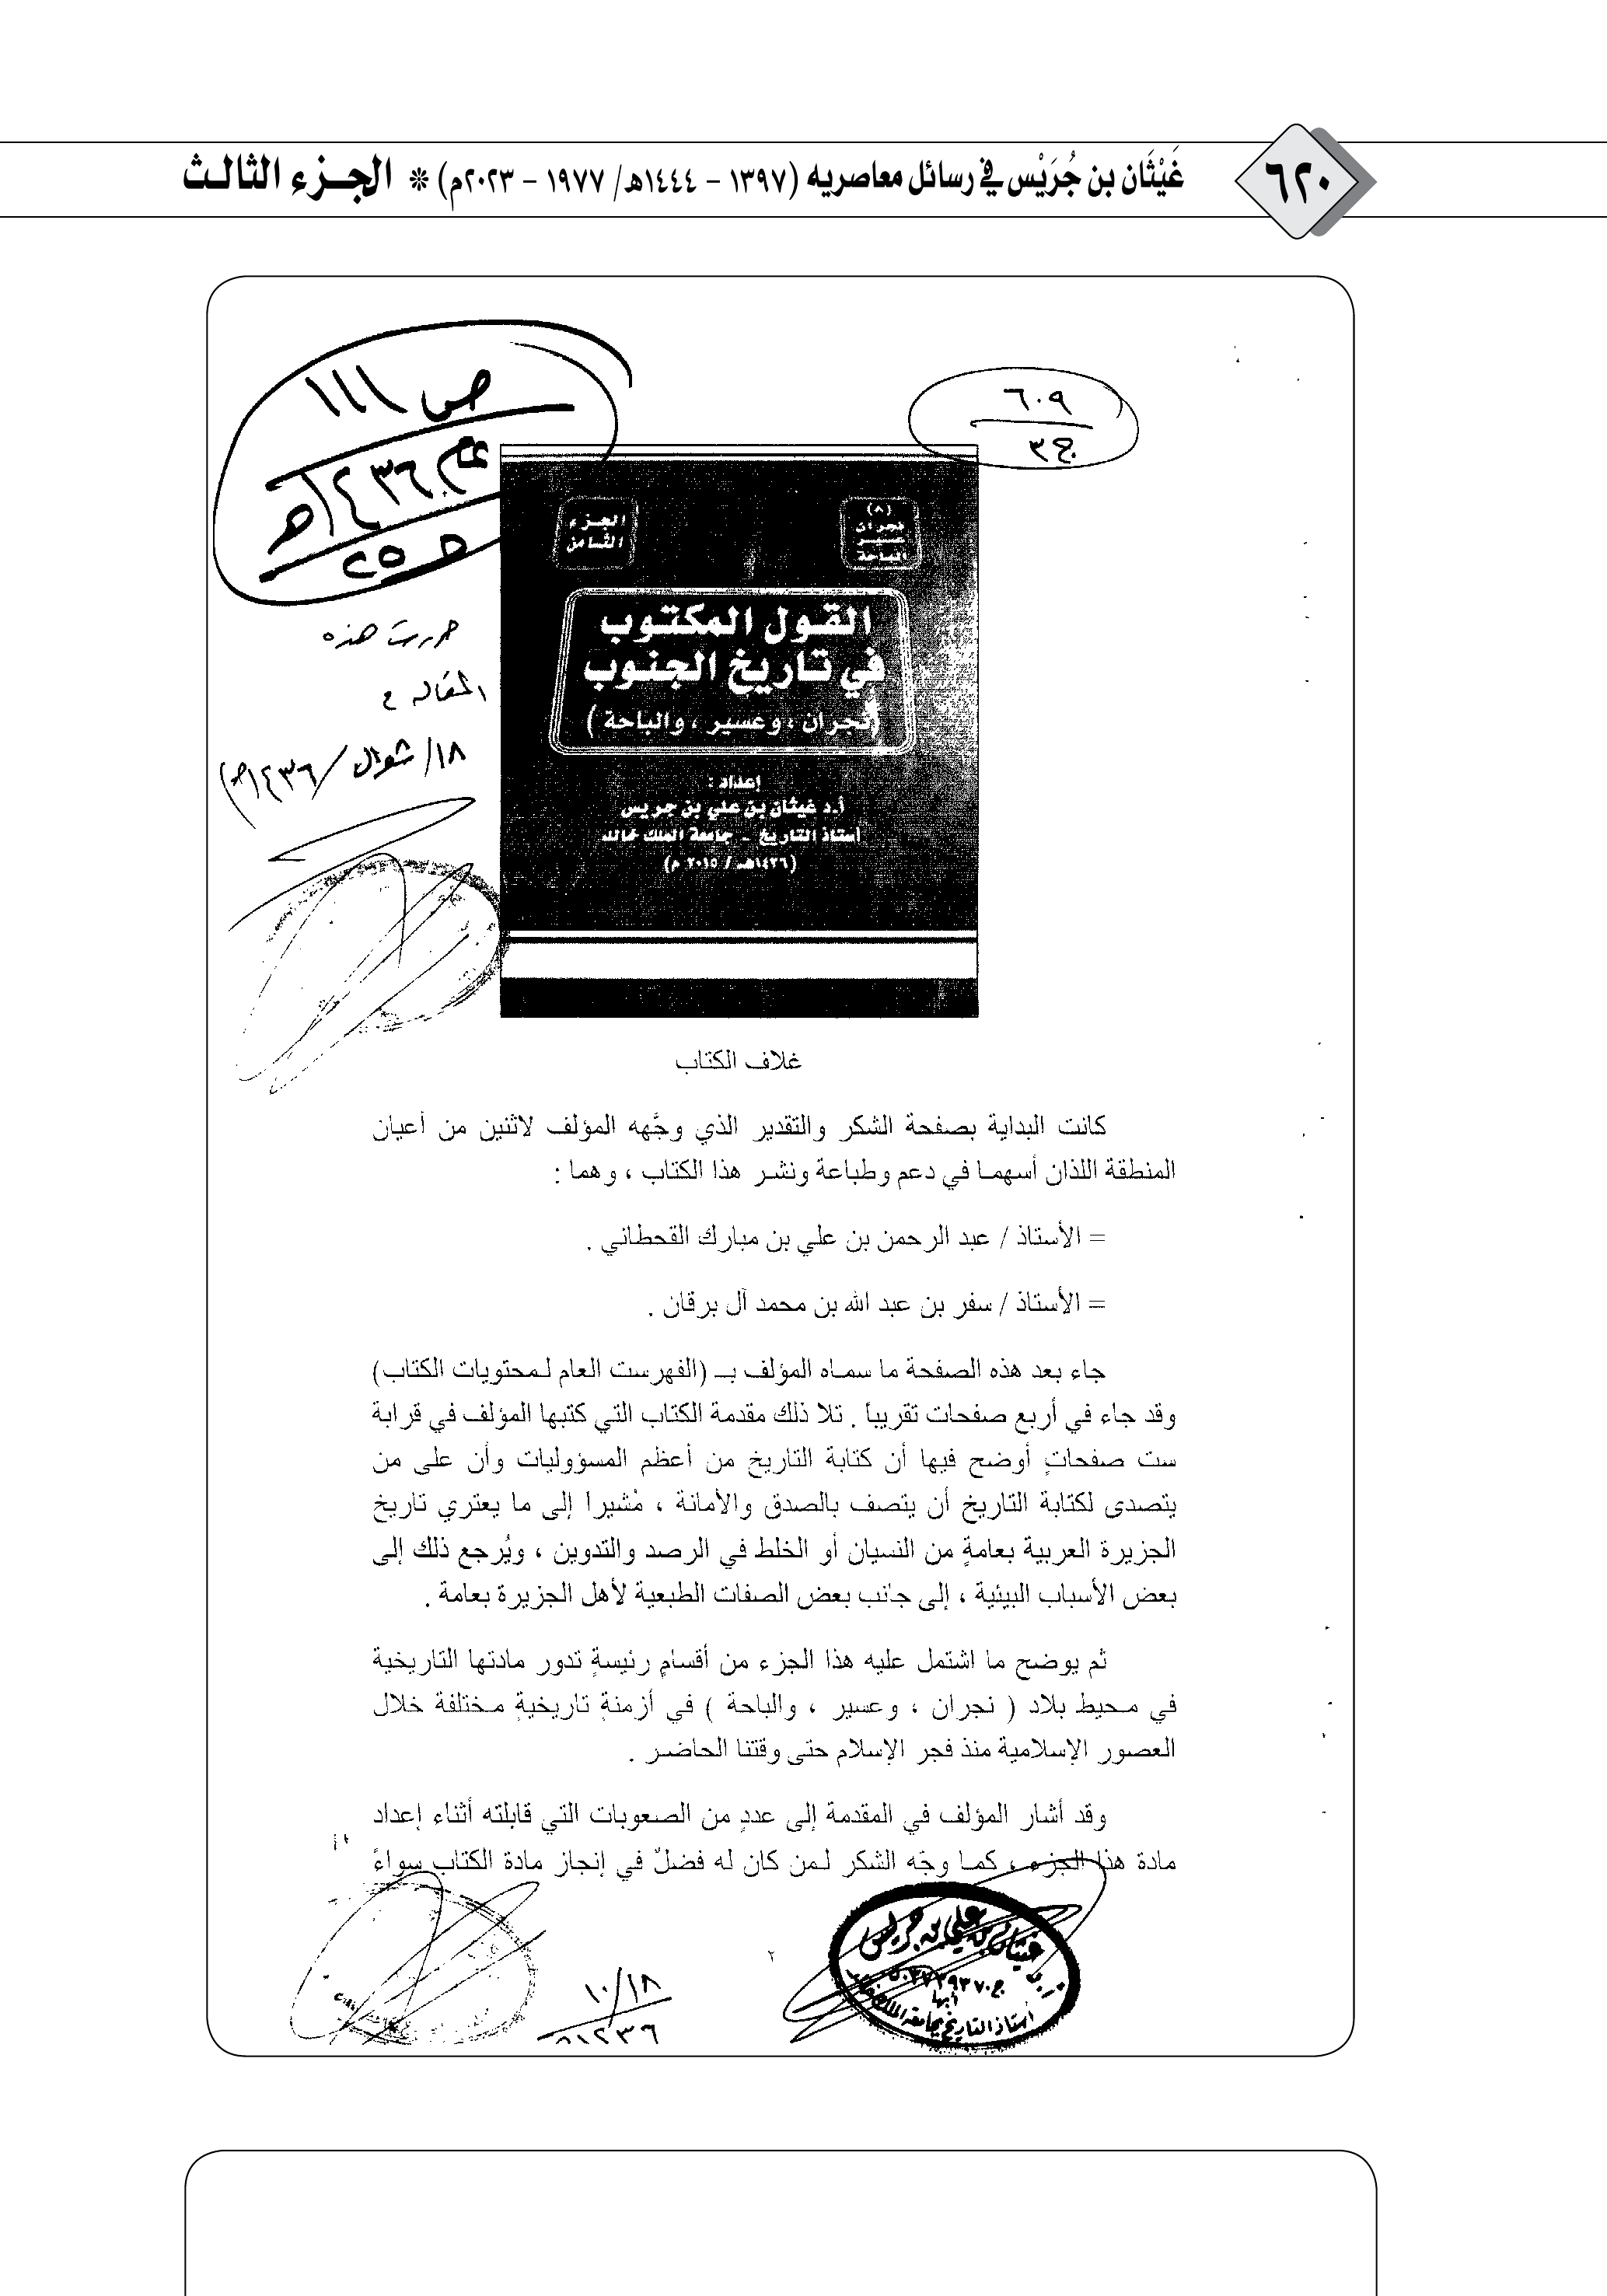 ٦٢٠
غَيْثَان بن جُرَيْس في رسائل معاصريه (١٣٩٧ - ١٤٤٤هـ/ ١٩٧٧ - ٢٠٢٣م) * الجزء الثالث
٦٠٩
ج٣
ص ١١١
عام ١٤٣٦هـ
حررت هذه
المقاله في
١٨/ شوال /١٤٣٦هـ)
(٨)
نجران
عسير
الباحة
الجزء
الثامن
القول المكتوب
في تاريخ الجنوب
(نجران ، وعسير ، والباحة )
إعداد :
أ.د غيثان بن علي بن جريس
أستاذ التاريخ - جامعة الملك خالد
(١٤٣٦هـ / ٢٠١٥ م)
غلاف الكتاب
كانت البداية بصفحة الشكر والتقدير الذي وجَّهه المؤلف لاثنين من أعيان
المنطقة اللذان أسهما في دعم وطباعة ونشر هذا الكتاب ، وهما :
= الأستاذ / عبد الرحمن بن علي بن مبارك القحطاني .
= الأستاذ / سفر بن عبد الله بن محمد آل برقان .
جاء بعد هذه الصفحة ما سماه المؤلف بـ (الفهرست العام لمحتويات الكتاب)
وقد جاء في أربع صفحات تقريباً . تلا ذلك مقدمة الكتاب التي كتبها المؤلف في قرابة
ست صفحاتٍ أوضح فيها أن كتابة التاريخ من أعظم المسؤوليات وأن على من
يتصدى لكتابة التاريخ أن يتصف بالصدق والأمانة ، مُشيراً إلى ما يعتري تاريخ
الجزيرة العربية بعامةٍ من النسيان أو الخلط في الرصد والتدوين ، ويُرجع ذلك إلى
بعض الأسباب البيئية ، إلى جانب بعض الصفات الطبعية لأهل الجزيرة بعامة .
ثم يوضح ما اشتمل عليه هذا الجزء من أقسامٍ رئيسةٍ تدور مادتها التاريخية
في محيط بلاد ( نجران ، وعسير ، والباحة ) في أزمنةٍ تاريخيةٍ مختلفة خلال
العصور الإسلامية منذ فجر الإسلام حتى وقتنا الحاضر .
وقد أشار المؤلف في المقدمة إلى عددٍ من الصعوبات التي قابلته أثناء إعداد
مادة هذا الجزء ، كما وجّه الشكر لمن كان له فضلٌ في إنجاز مادة الكتاب سواءً
٢
غيثان بن علي بن جريس
أبها
أستاذ التاريخ بجامعة الملك خالد
١٠/١٨
١٤٣٦هـ